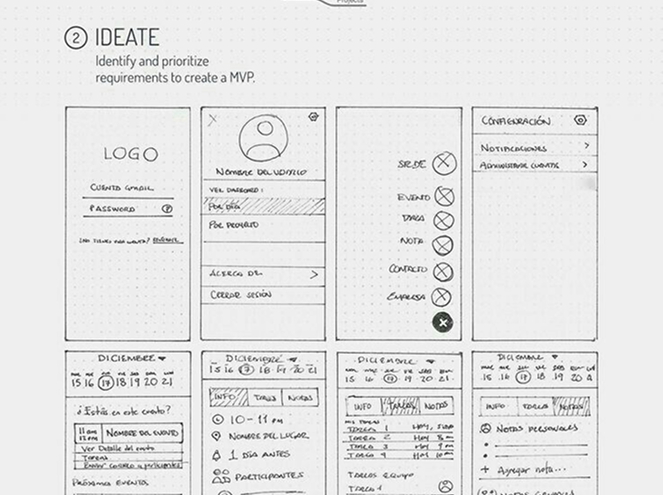 Projects
2 IDEATE
Identify and prioritize
requirements to create a MVP.
LOGO
CUENTA GMAIL
PASSWORD
NOMBRE DEL USUARIO
VER DASHBOARD:
POR DÍA
POR PROYECTO
ACERCA DE:
CERRAR SESIÓN
EVENTO
TAREA
NOTA
CONTACTO
EMPRESA
CONFIGURACIÓN
NOTIFICACIONES
ADMINISTRAR CUENTAS
DICIEMBRE
15 16 17 18 19 20 21
¿Estás en este evento?
11 am
12 am
NOMBRE DEL EVENTO
Ver Detalle del evento
TAREAS
Enviar correo a participantes
PRÓXIMO EVENTO
DICIEMBRE
15 16 17 18 19 20 21
INFO TAREAS NOTAS
10 - 11 am
NOMBRE DEL LUGAR
1 DÍA ANTES
PARTICIPANTES
DICIEMBRE
15 16 17 18 19 20 21
INFO TAREAS NOTAS
MIS TAREAS
TAREA 1 HOY,
TAREA 2 HOY
TAREA 3 HOY
TAREA 4 HOY
TAREAS EQUIPO
TAREA 1
DICIEMBRE
15 16 17 18 19 20
INFO TAREAS NOTAS
NOTAS PERSONALES
+ Agregar nota...